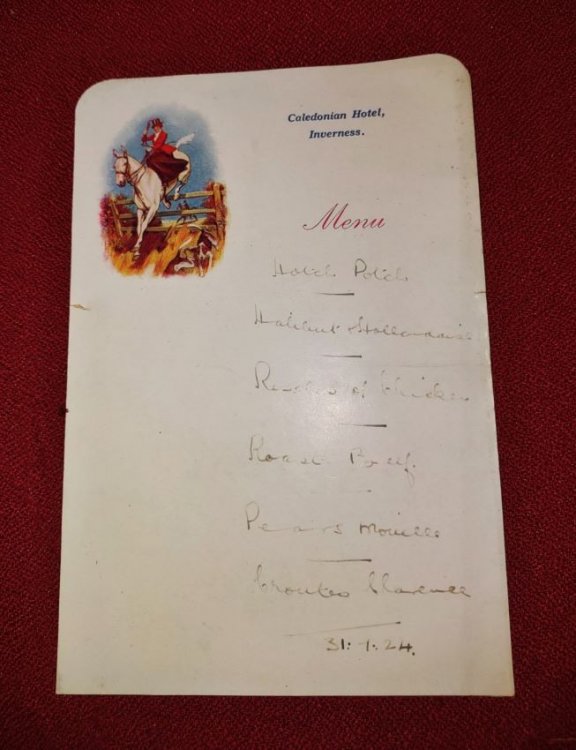 Caledonian Hotel,
Inverness.
Menu
Hotch Potch
Halibut Hollandaise
of Chicken
Roast Beef.
Pears
Croutes Clarence
31.1.24.